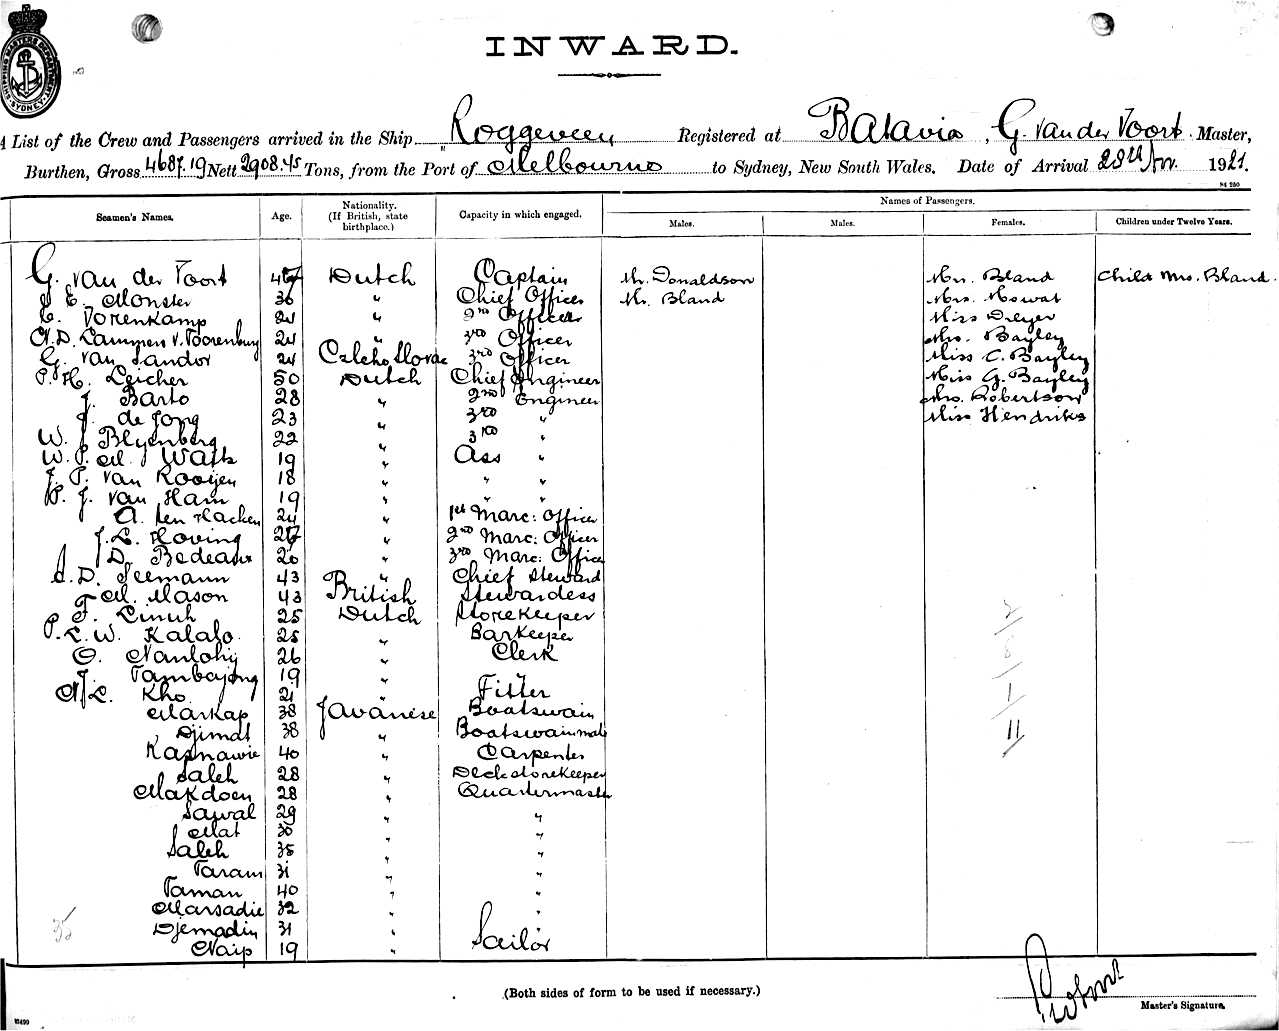 SHIPPING MASTERS DEPARTMENT SYDNEY
INWARD.
A List of the Crew and Passengers arrived in the Ship "Roggeveen Registered at Batavia, G. van der Voort Master,
Burthen, Gross 4687.19 Nett 2908.45 Tons, from the Port of Melbourne to Sydney, New South Wales. Date of Arrival 1921.
Names of Passengers.
Seamen's Names. Age. Nationality. (If British, state birthplace.) Capacity in which engaged. Males. Males. Females. Children under Twelve Years.
G. van der Voort 47 Dutch Captain Mr. Donaldson Mrs. Bland Child Mrs. Bland.
E. Monster 36 " Chief Officer Mr. Bland Mrs. Mowat
E. Vorenkamp 24 " 2nd Officer Miss Dreyer
N. D. Lammen v. Toorenburg 24 " 3rd Officer Mrs. Bayley
G. van Sandor 24 Czlcho Slovac 3rd Officer Miss C. Bayley
P. H. Leicher 50 Dutch Chief Engineer Miss G. Bayley
J. Barto 28 " 2nd Engineer Mrs. Robertson
J. de Jong 23 " 3rd " Miss Hendriks
W. J. Blyenberg 22 " 3rd "
W. P. M. Watts 19 " Ass "
J. P. van Rooijen 18 " " "
P. J. van Ham 19 " " "
A. ten Hacken 24 " 1st Marc: Officer
J. L. Hoving 27 " 2nd Marc: Officer
J. D. Bedeaux 20 " 3rd Marc: Officer
A. D. Seemann 43 " Chief Steward
M. Mason 43 British Stewardess
F. Linuh 25 Dutch Storekeeper
P. L. W. Kalalo 25 " Barkeeper
O. Nanlohy 26 " Clerk
J. Tambajong 19 " "
N. L. Kho 21 " Fitter
Markap 38 Javanese Boatswain
Djimat 38 " Boatswainmate
Kasnawie 40 " Carpenter
Saleh 28 " Deckstorekeeper
Makdoen 28 " Quartermaster
Sawal 29 " "
Mat 30 " "
Saleh 35 " "
Taram 31 " "
Taman 40 " "
Marsadie 32 " "
Djemadin 31 "
Naip 19 " Sailor
2
8
1
11
35
(Both sides of form to be used if necessary.)
Master's Signature.